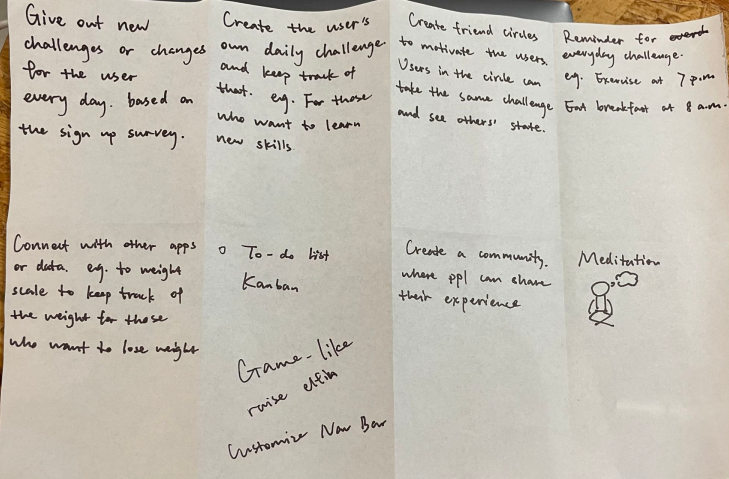 Give out new
challenges or changes
for the user
every day. based on
the sign up survey.
Create the user's
own daily challenge
and keep track of
that. eg. For those
who want to learn
new skills
Create friend circles
to motivate the users.
Users in the circle can
take the same challenge
and see others' state.
Reminder for
everyday challenge.
eg. Exercise at 7 p.m
Eat breakfast at 8 a.m.
Connect with other apps
or data. eg. to weight
scale to keep track of
the weight for those
who want to lose weight
To-do list
Kanban
Game-like
raise elfin
Customize Nav Bar
Create a community.
where ppl can share
their experience
Meditation